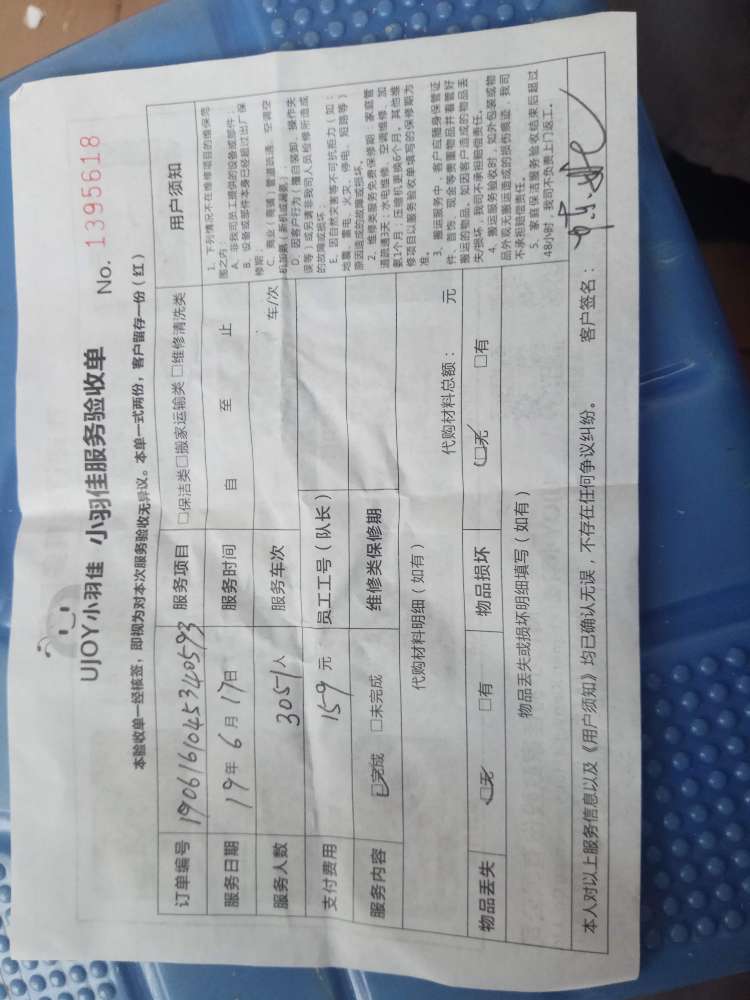 UJOY小羽佳 小羽佳服务验收单
No. 1395618
本验收单一经核签，即视为对本次服务验收无异议。本单一式两份，客户留存一份（红）
订单编号 1906161045340593 服务项目 □保洁类□搬家运输类 □维修清洗类
服务日期 19年 6月 17日 服务时间 自 至 止
服务人数 3051人 服务车次 车/次
支付费用 159元 员工工号（队长）
服务内容 □完成 □未完成 维修类保修期
代购材料明细（如有） 代购材料总额： 元
物品丢失 □无 □有 物品损坏 □无 □有
物品丢失或损坏明细填写（如有）
用户须知
1. 下列情况不在维修项目的维保范
围之内：
A. 非我司员工提供的设备或部件；
B. 设备或部件本身已经超过出厂保
修期；
C. 商业（商铺）管道疏通、空调空
机加氨（新机或漏氨）；
D. 因客户行为（擅自装卸、操作失
误等）或另请非我司人员检修所造成
的故障或损坏。
E. 因自然灾害等不可抗拒力（如：
地震、雷电、火灾、停电、短路等）
原因造成的故障或损坏。
2. 维修类服务免费保修期：家庭管
道疏通3天；水电维修、空调维修、加
氨1个月；压缩机更换6个月。其他维
修项目以服务验收单填写的保修期为
准。
3. 搬运服务中，客户应随身保管证
件、首饰、现金等贵重物品并看管好
搬运的物品，如因客户造成的物品丢
失/损坏，我司不承担赔偿责任。
4. 搬运服务验收时，如外包装或物
品外或无搬运造成的损伤痕迹，我司
不承担赔偿责任。
5. 家庭保洁服务验收结束后超过
48小时，我司不负责上门返工。
本人对以上服务信息以及《用户须知》均已确认无误，不存在任何争议纠纷。 客户签名：